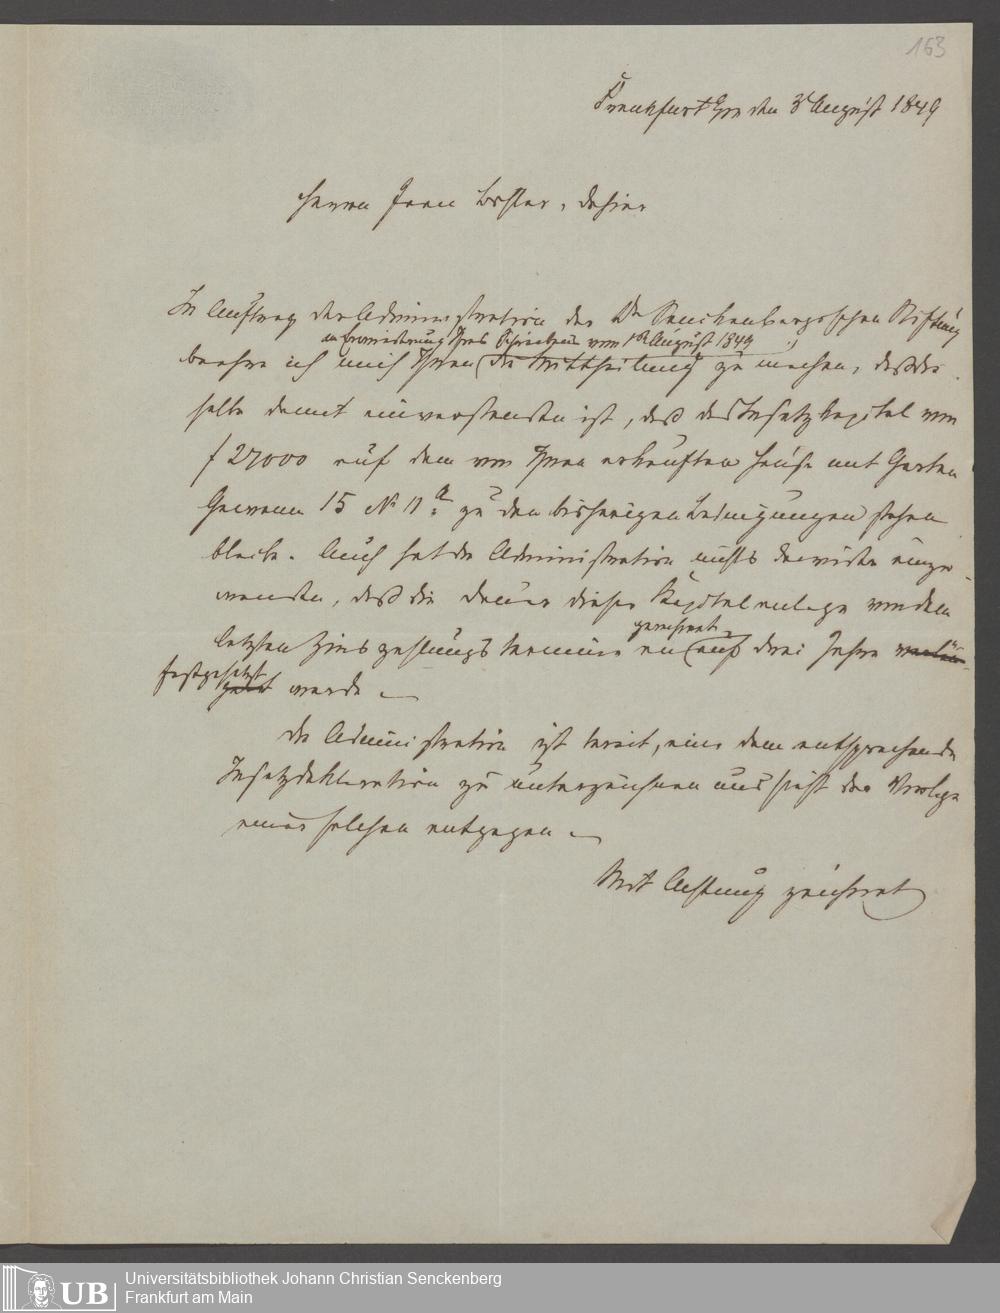 163
Frankfurt a/m den 3 August 1849
Herrn Jean dahier
Im Auftrag der Administration der Dr Senckenbergischen Stiftung
in Erwiederung Ihres Schreibens vom 1n August 1849
beehre ich mich Ihnen die Mittheilung zu machen, daß die
selbe damit einverstanden ist, daß das Insatzkapital von
f 27000 auf dem von Ihnen erkauften Hause mit Garten
Gewann 15 No 11a zu den bisherigen Bedingungen stehen
bleibe. Auch hat die Administration nichts dawider einzu-
wenden, daß die Dauer dieser Kapitalanlage von dem
gerechnet
letzten Zinszahlungstermine an auf drei Jahre
festgesetzt
werde
Die Administration ist bereit, eine dem entsprechende
Insatzdeklaration zu unterzeichnen und sieht der Vorlage
einer solchen entgegen
Mit Achtung zeichnet
UB
Universitätsbibliothek Johann Christian Senckenberg
Frankfurt am Main